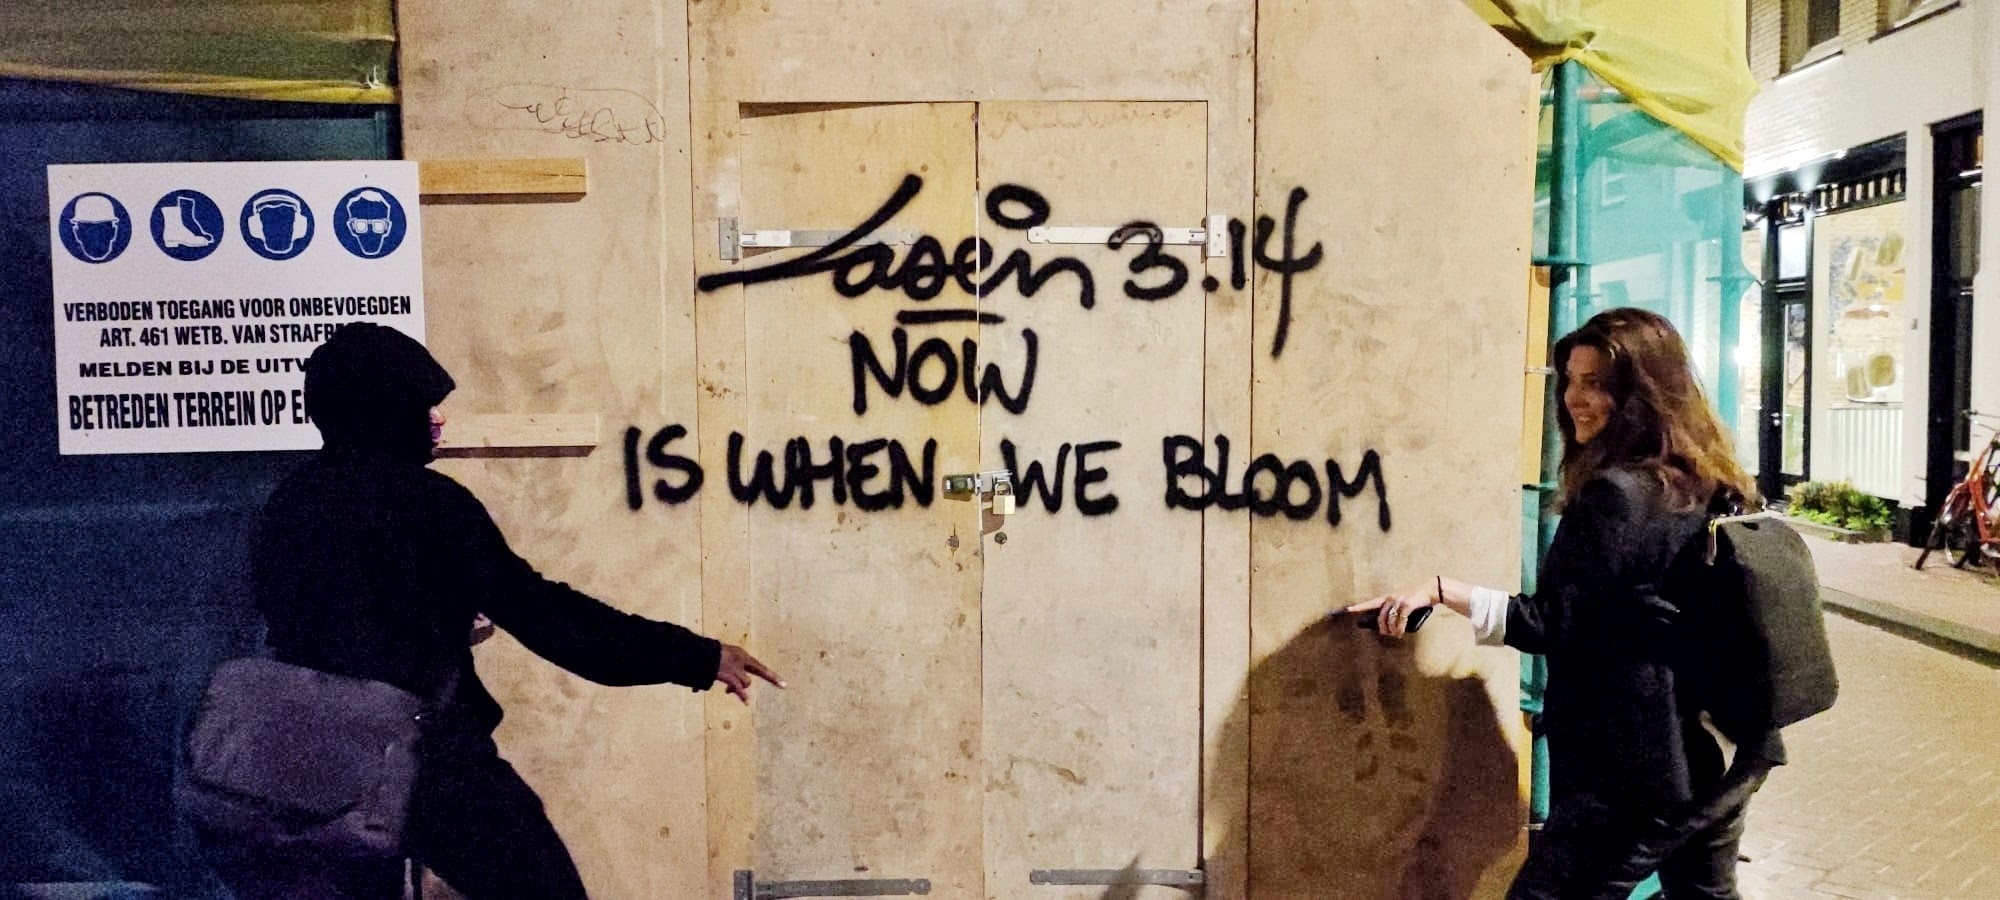 VERBODEN TOEGANG VOOR ONBEVOEGDEN
ART. 461 WETB. VAN
MELDEN BIJ DE
BETREDEN TERREIN OP
Laser 3.14
NOW
IS WHEN WE BLOOM